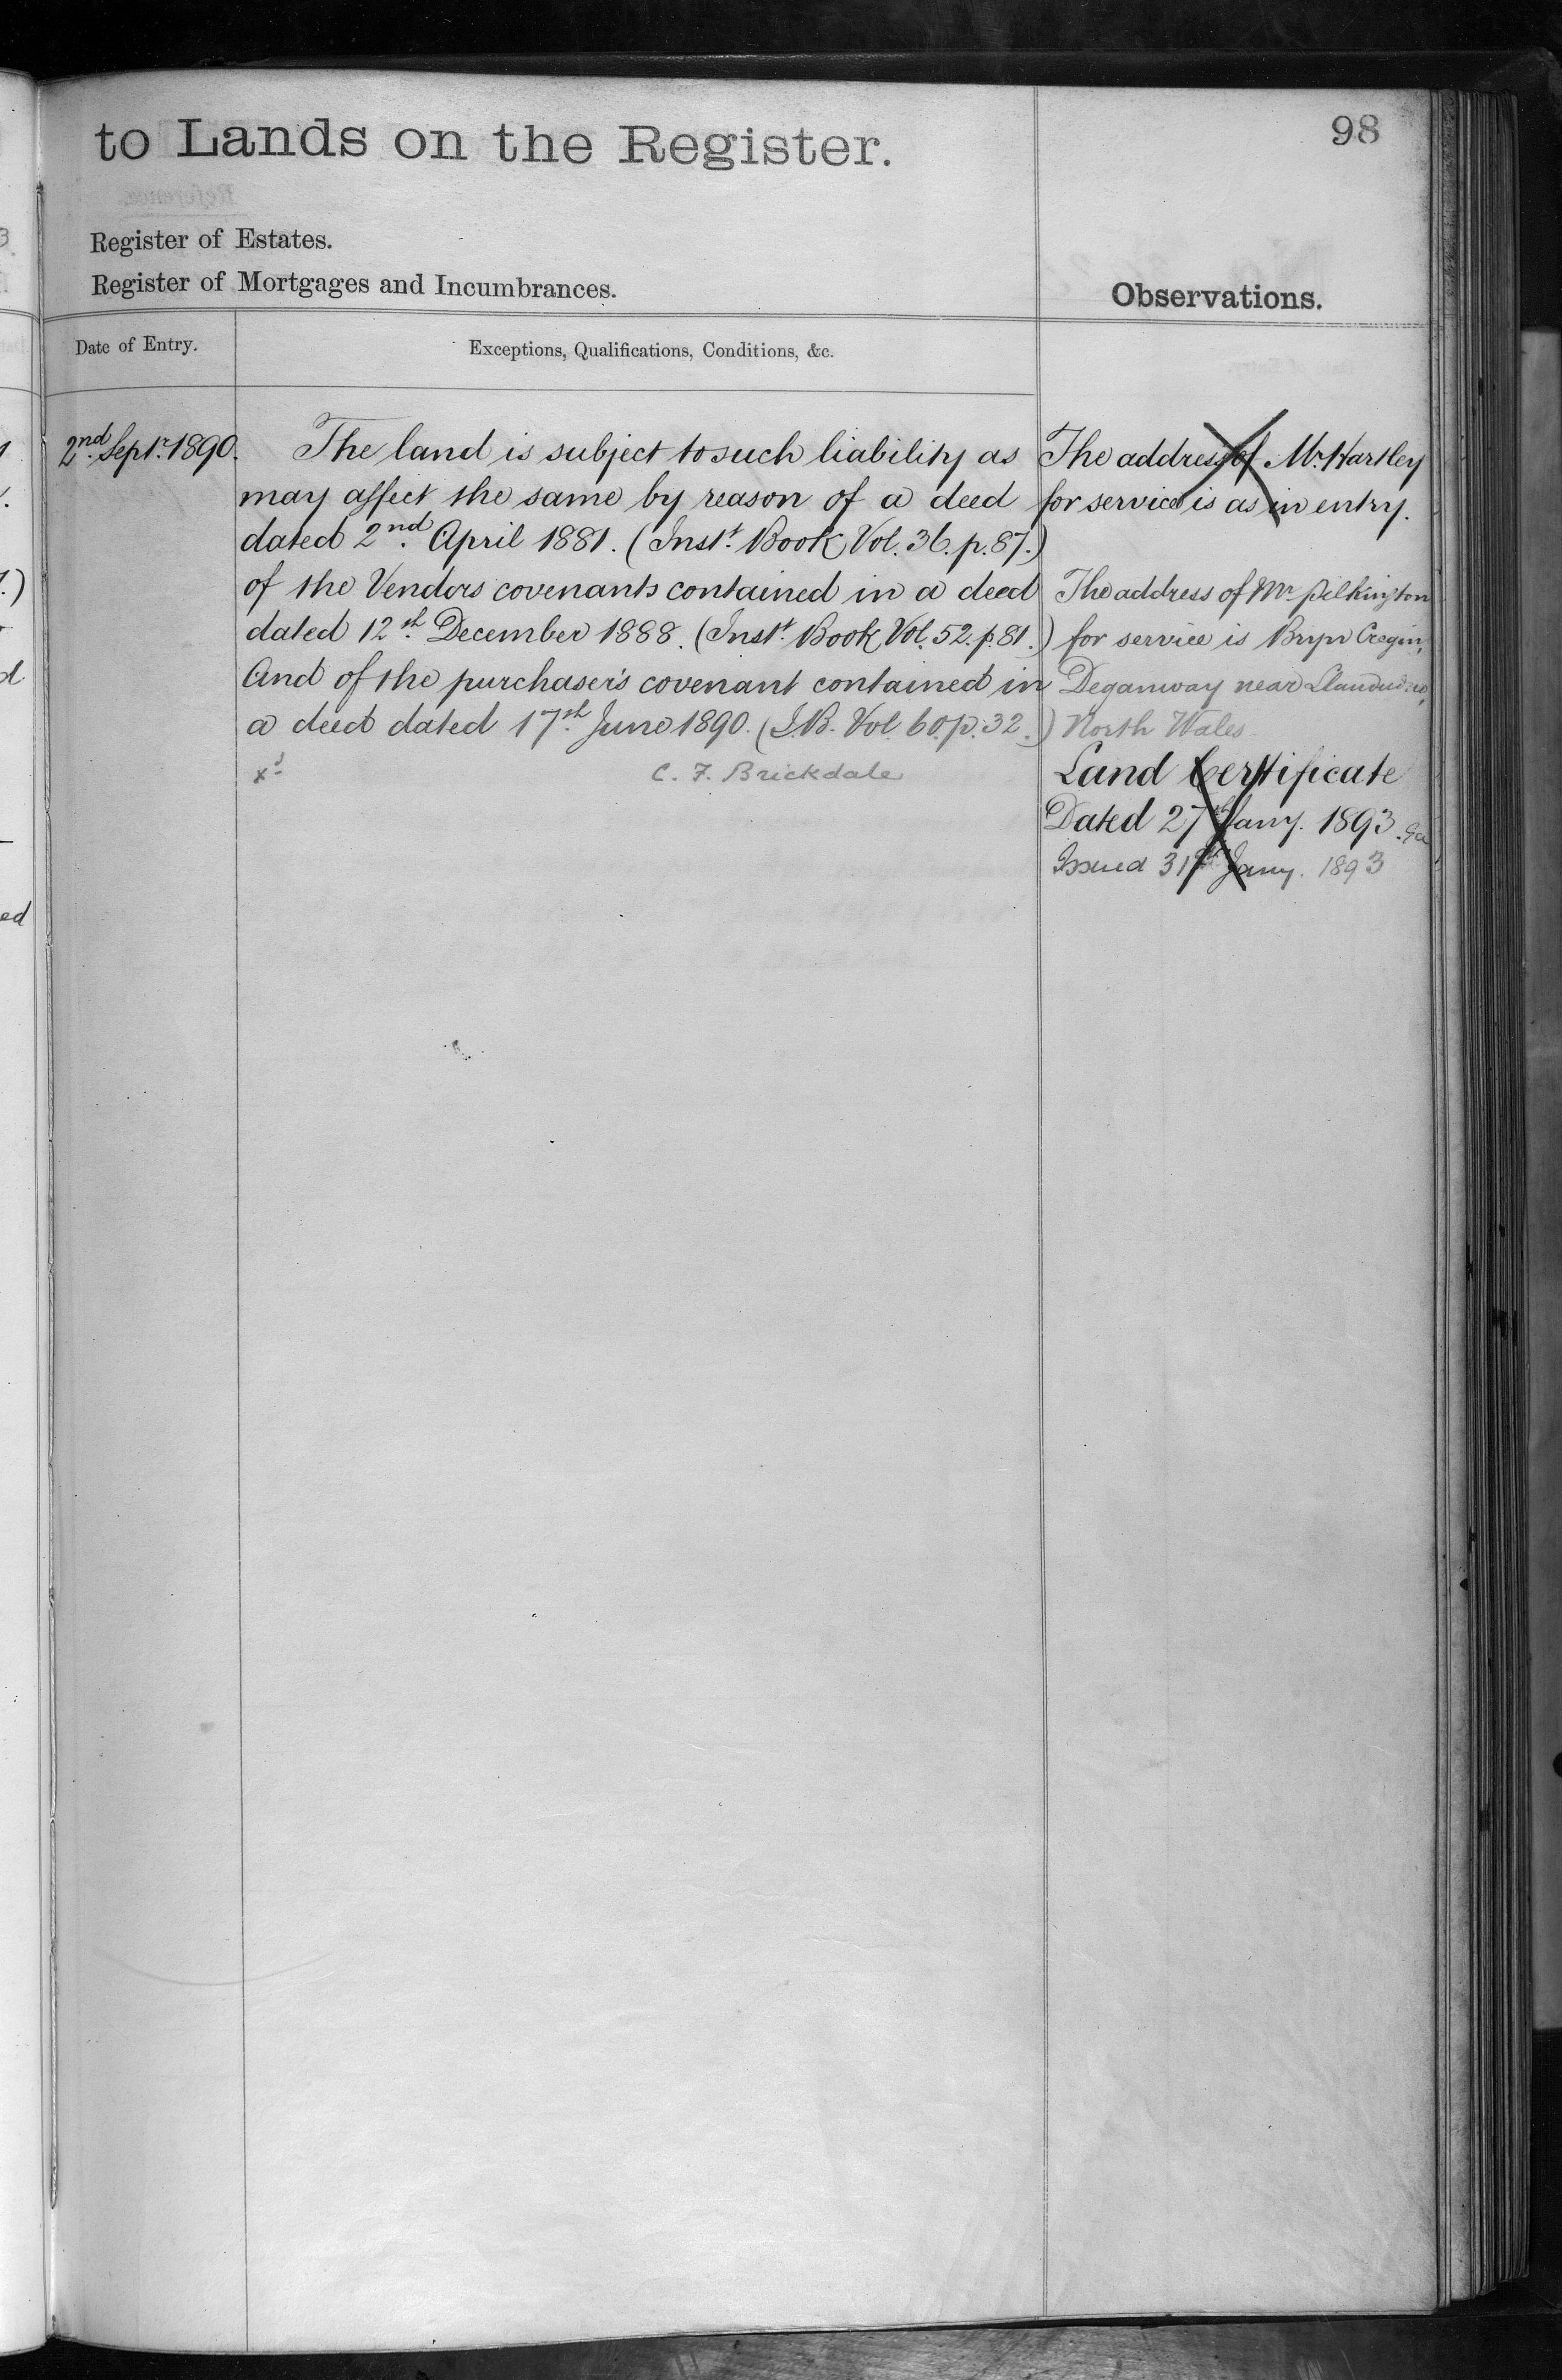 to Lands on the Register.
98
Register of Estates.
Register of Mortgages and Incumbrances.
Observations.
Date of Entry.
Exceptions, Qualifications, Conditions, &c.
2nd Septr. 1890.
The land is subject to such liability as
may affect the same by reason of a deed
dated 2nd April 1881. (Instt. Book Vol. 36. p. 87.)
of the Vendors covenants contained in a deed
dated 12th December 1888. (Instt. Book Vol. 52. p. 81.)
And of the purchaser's covenant contained in
a deed dated 17th June 1890. (I.B. Vol. 60. p. 32.)
C. F. Brickdale
The address of Mr. Hartley
for service is as in entry.
The address of Mr. Pilkington
for service is Bryn Cregin,
Deganway near Llandudno,
North Wales
Land Certificate
Dated 27th Jany. 1893
Issued 31st Jany. 1893